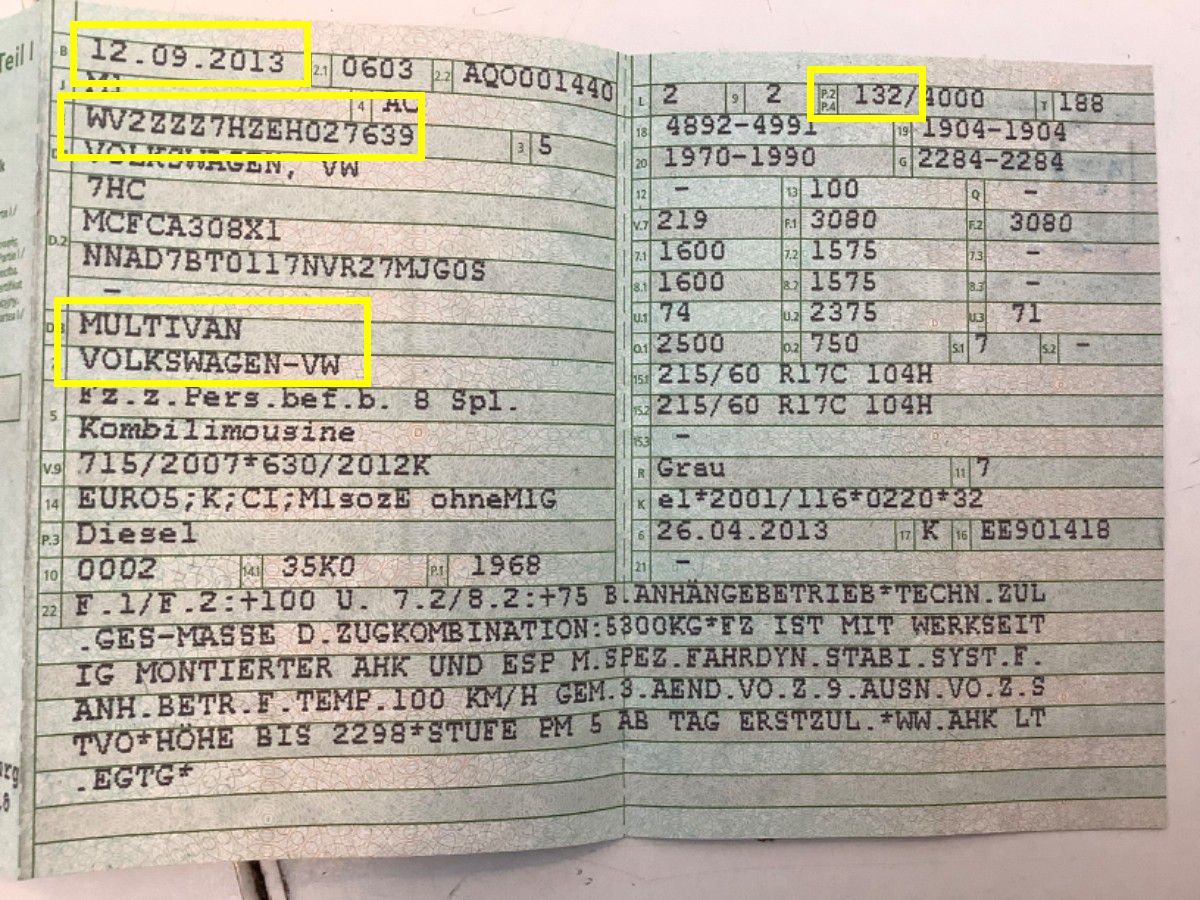 Teil I
B 12.09.2013 2.1 0603 2.2 AQO001440
J M1 4 AC
WV2ZZZ7HZEH027639 3 5
VOLKSWAGEN, VW
7HC
D.2 MCFCA308X1
NNAD7BT0117NVR27MJG0S
–
D.3 MULTIVAN
2 VOLKSWAGEN-VW
5 Fz.z.Pers.bef.b. 8 Spl.
Kombilimousine
V.9 715/2007*630/2012K
14 EURO5;K;CI;M1sozE ohneM1G
P.3 Diesel
10 0002 14.1 35K0 P.1 1968
L 2 9 2 P.2 P.4 132/4000 T 188
18 4892-4991 19 1904-1904
20 1970-1990 G 2284-2284
12 – 13 100 Q –
V.7 219 F.1 3080 F.2 3080
7.1 1600 7.2 1575 7.3 –
8.1 1600 8.2 1575 8.3 –
U.1 74 U.2 2375 U.3 71
O.1 2500 O.2 750 S.1 7 S.2 –
15.1 215/60 R17C 104H
15.2 215/60 R17C 104H
15.3 –
R Grau 11 7
K e1*2001/116*0220*32
6 26.04.2013 17 K 16 EE901418
21 –
22 F.1/F.2:+100 U. 7.2/8.2:+75 B.ANHÄNGEBETRIEB*TECHN.ZUL
.GES-MASSE D.ZUGKOMBINATION:5300KG*FZ IST MIT WERKSEIT
IG MONTIERTER AHK UND ESP M.SPEZ.FAHRDYN.STABI.SYST.F.
ANH.BETR.F.TEMP.100 KM/H GEM.3.AEND.VO.Z.9.AUSN.VO.Z.S
TVO*HÖHE BIS 2298*STUFE PM 5 AB TAG ERSTZUL.*WW.AHK LT
.EGTG*